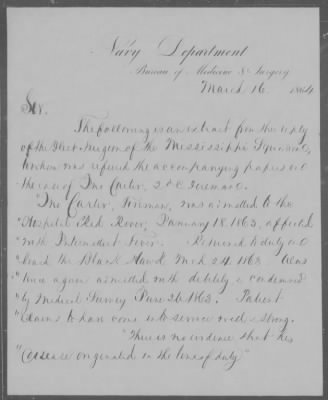 Navy Department
Bureau of Medicine & Surgery
March 16. 1864
Sir.
The following is an extract from the reply
of the Fleet Surgeon of the Mississippi Squadron,
to whom was referred the accompanying papers in
the case of Jno Carter, 2d C. Fireman.
"Jno Carter, Fireman, was admitted to the
"Hospital Red Rover, January 18. 1863, affected
"with Intermittent Fever. Returned to duty on
board the Black Hawk March 24. 1863. Was
"once again admitted with debility & condemned
"by Medical Survey June 26. 1863. Patient
"claims to have come into service well & strong.
"There is no evidence that his
"disease originated in the line of duty"